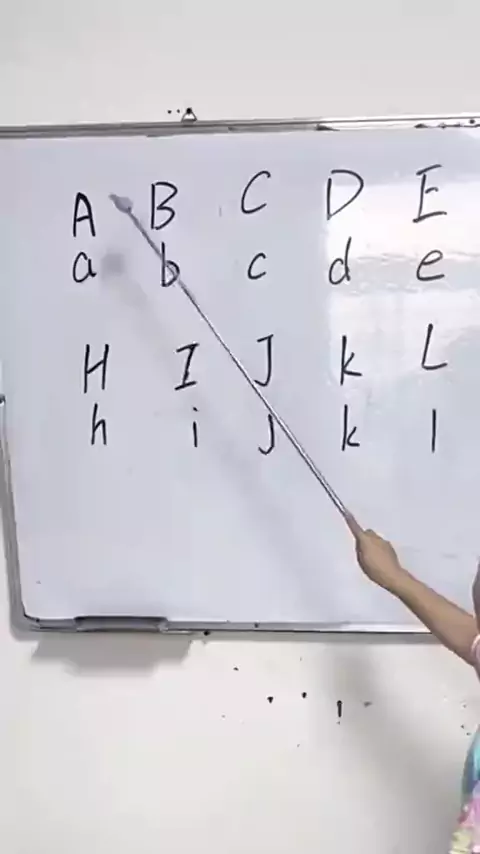 A B C D E
a b c d e
H I J k L
h i j k l